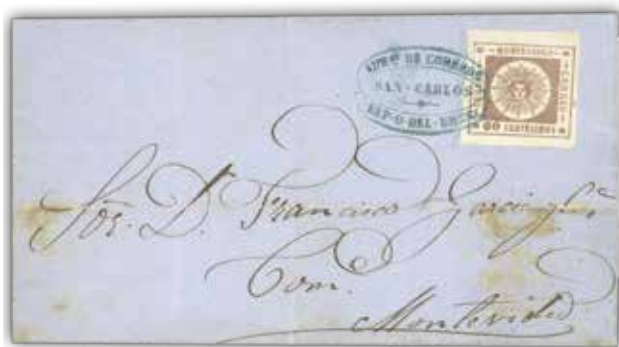 ADMON DE CORREOS
SAN-CARLOS
REP-O-DEL-
MONTEVIDEO
CORREO
60 CENTESIMOS
Sor. D. Francisco
Com.
Montevideo